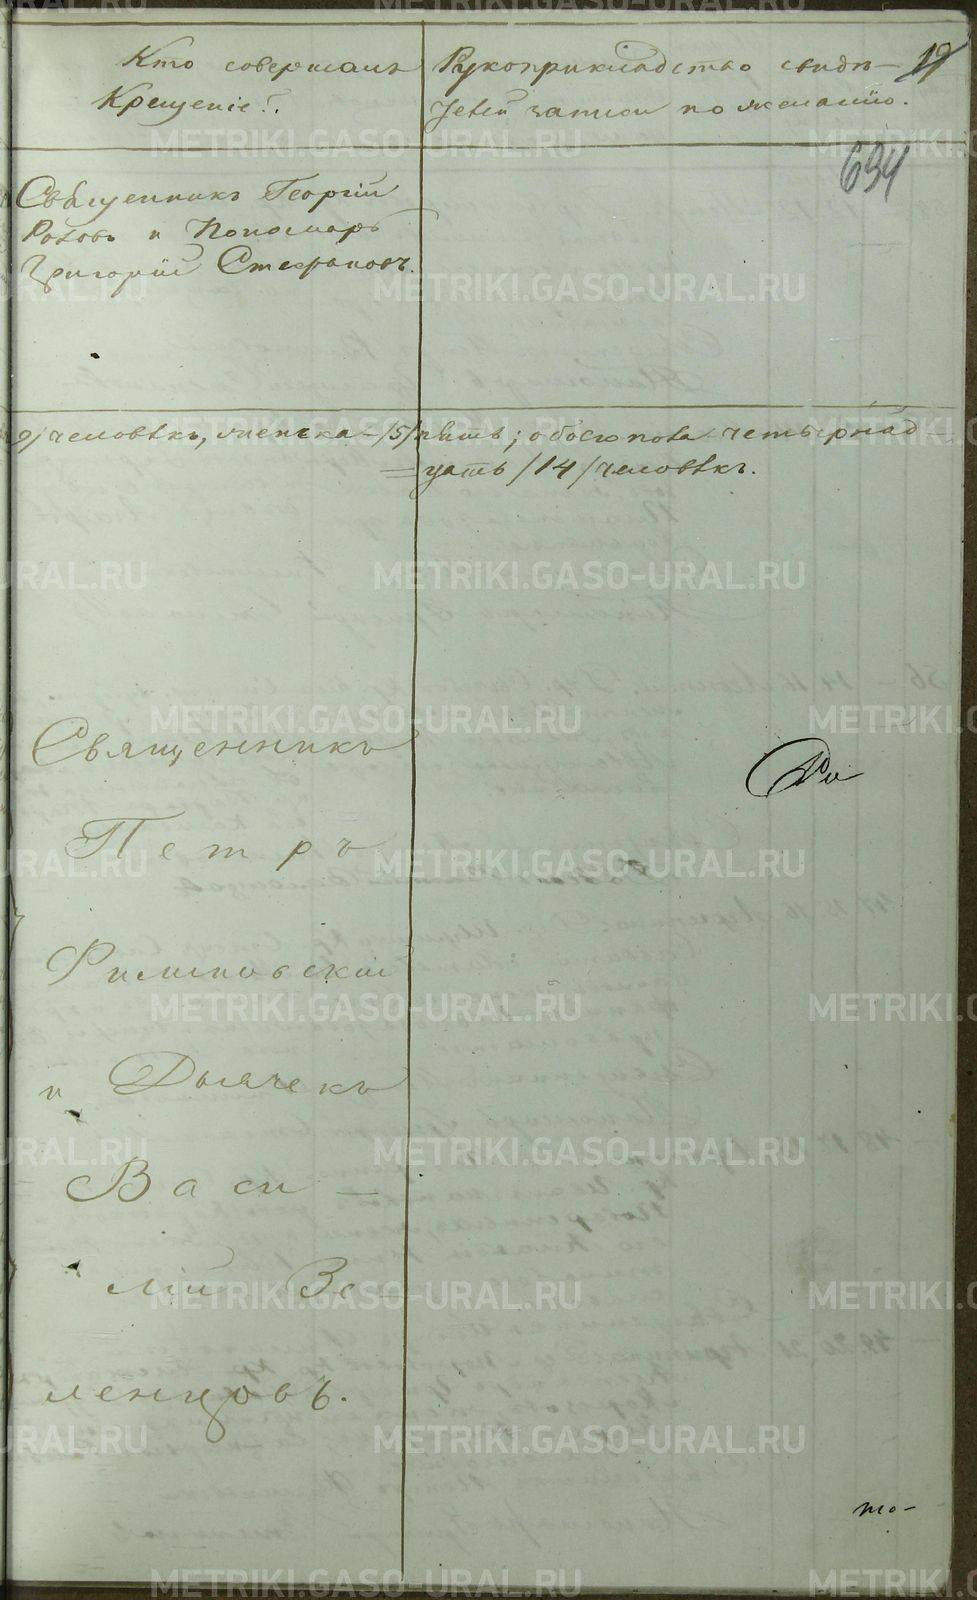 Кто совершалъ
Крещеніе?.
Рукоприкладство свидѣ-
телей записи по желанію.
19
694
Священникъ Георгій
и Пономарь
Григорій Стефановъ.
9/ человѣкъ, женска /5/ пять; обоего пола четырнад
=цать /14/ человѣкъ.
Священникъ
Петръ
Филиповскій
и Дьячекъ
Васи-
лій Зе-
ленцовъ.
Ри
то-
METRIKI.GASO-URAL.RU